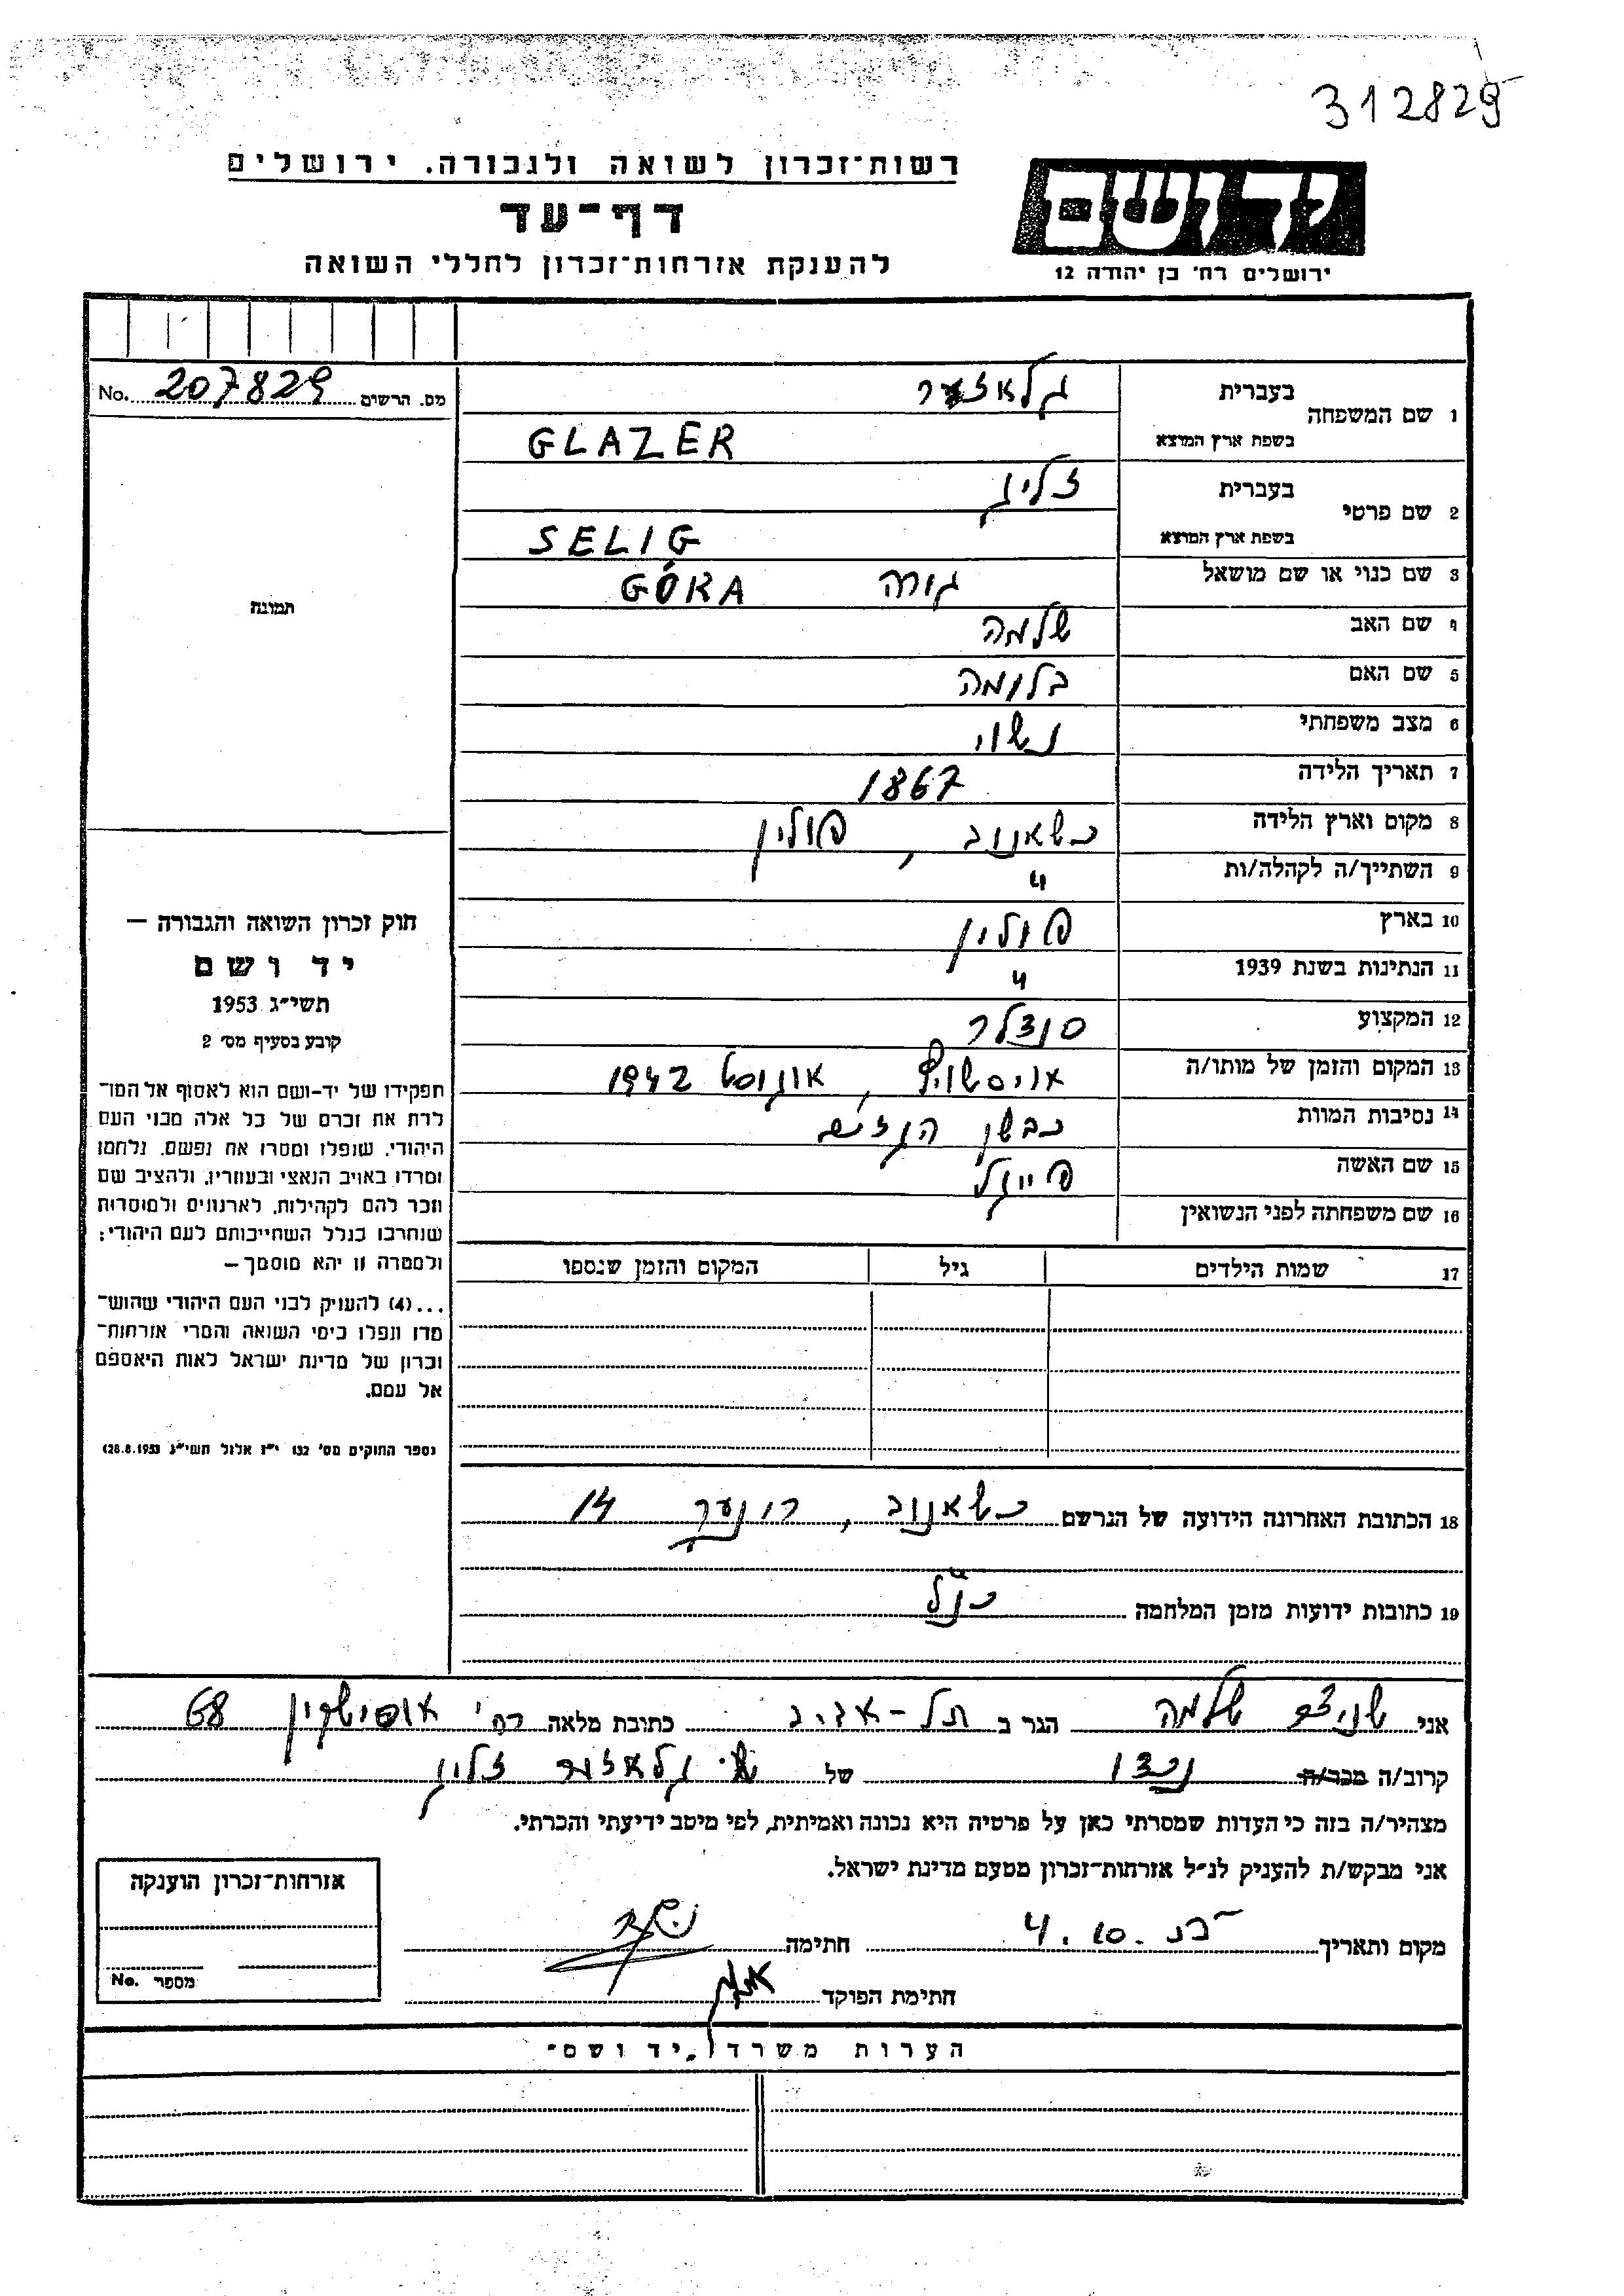 312829
רשות־זכרון לשואה ולגבורה. ירושלים
יד ושם
דף־עד
ירושלים רח׳ בן יהודה 12
להענקת אזרחות־זכרון לחללי השואה
No. 207829 מס. הרשום
1 שם המשפחה בעברית גלאזער
בשפת ארץ המוצא GLAZER
2 שם פרטי בעברית זליג
בשפת ארץ המוצא SELIG
3 שם כנוי או שם מושאל גורה GÓRA
4 שם האב שלמה
5 שם האם בלומה
6 מצב משפחתי נשוי
7 תאריך הלידה 1867
8 מקום וארץ הלידה כשאנוב, פולין
9 השתייך/ה לקהלה/ות "
10 בארץ פולין
11 הנתינות בשנת 1939 "
12 המקצוע סנדלר
13 המקום והזמן של מותו/ה אויסשויץ, אוגוסט 1942
14 נסיבות המוות כבשן הגזים
15 שם האשה פייגל
16 שם משפחתה לפני הנשואין
17 שמות הילדים גיל המקום והזמן שנספו
תמונה
חוק זכרון השואה והגבורה —
יד ושם
תשי״ג 1953
קובע בסעיף מס׳ 2
תפקידו של יד-ושם הוא לאסוף אל המו־
לדת את זכרם של כל אלה מבני העם
היהודי, שנפלו ומסרו את נפשם, נלחמו
ומרדו באויב הנאצי ובעוזריו, ולהציב שם
וזכר להם לקהילות, לארגונים ולמוסדות
שנחרבו בגלל השתייכותם לעם היהודי;
ולמטרה זו יהא מוסמך —
...(4) להעניק לבני העם היהודי שהוש־
מדו ונפלו בימי השואה והמרי אזרחות־
זכרון של מדינת ישראל לאות היאספם
אל עמם.
(ספר החוקים מס׳ 132 י״ז אלול תשי״ג 28.8.1953)
18 הכתובת האחרונה הידועה של הנרשם כשאנוב, רונעק 14
19 כתובות ידועות מזמן המלחמה כנ״ל
אני שניצר שלמה הגר ב תל-אביב כתובת מלאה רח׳ אוסישקין 68
קרוב/ה מכר/ה נכדו של גלאזער זליג
מצהיר/ה בזה כי העדות שמסרתי כאן על פרטיה היא נכונה ואמיתית, לפי מיטב ידיעתי והכרתי.
אני מבקש/ת להעניק לנ״ל אזרחות־זכרון מטעם מדינת ישראל.
מקום ותאריך 4.10. חתימה
חתימת הפוקד
אזרחות־זכרון הוענקה
מספר No.
הערות משרד „יד ושם״